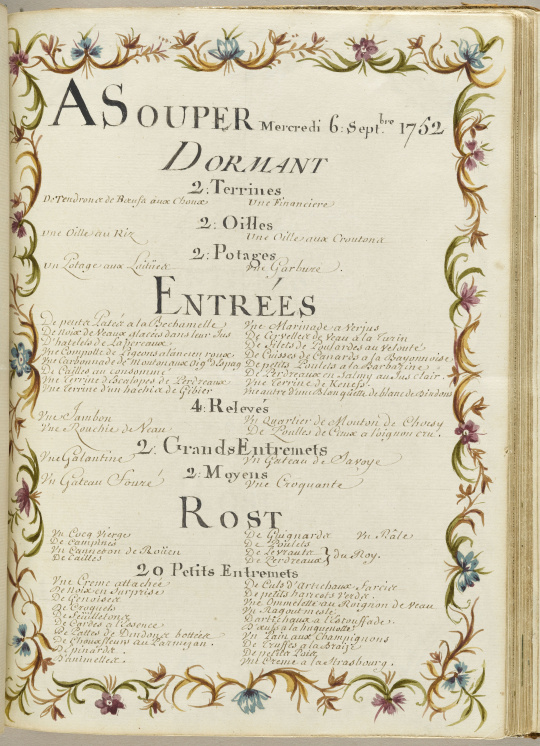 A SOUPER Mercredi 6: Sept.bre 1752
DORMANT
2: Terrines
De Tendrons de Bœufs aux Choux Une Financiere
2: Oilles
Une Oille au Riz Une Oille aux Croutons
2: Potages
Un Potage aux Laitües Une Garbure.
ENTRÉES
De petits Patés a la Bechamelle Une Marinade a Verjus
De noix de Veaux glacées dans leur Jus De Cervelles de Veau a la
D'hatelets de Lapereaux De Filets de Poulardes au Velouté
Une Compotte de Pigeons a l'ancien roux De Cuisses de Canards a la Bayonnoise
Une Carbonnade de Moutons aux Oig.ns d'Espag De petits Poulets a la Barbarine
De Cailles au consommé De Perdreaux en Salmy au Jus clair.
Une Terrine d'Escalopes de Perdreaux Une Terrine de
Une Terrine d'un hachis de Gibier Un autre d'une Blanquette de blanc de Dindons
4: Relevés
Une Jambon Un Quartier de Mouton de Choisy
Une Rouelle de Veau De Poulles de Caux a l'oignon cru.
2: Grands Entremets
Une Galantine Un Gateau de Savoye
2: Moyens
Un Gateau Fouré Une Croquante
ROST
Un Cocq Vierge De Guignards Un Râle
De Campines De Poulets
Un Canneton de Roüen De Levrauts } du Roy.
De Cailles De Perdreaux
20 Petits Entremets
Une Creme attachée De Culs d'Artichaux Farcis
De noix en Surprise De petits haricots Verds
De Genoises Une Ommelette au Roignon de Veau
De Croquets Un Ragout mesle
De feuilletons D'artichaux a l'Estouffade
De Cardes a l'essence D'œufs a la huguenotte
De Pattes de Dindons bottées Un Pain aux Champignons
De Choux fleurs au Parmejan. De Truffes a la Braize
D'Epinards De petits Pois
D'animelles. Une Creme a la Strasbourg.